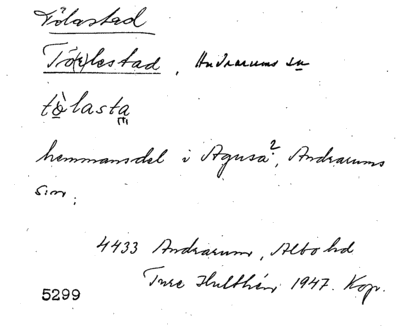 Tölastad
Tö(e)lestad, Andrarums sn
tö̀lasta
hemmansdel i Agusa?, Andrarums
sn;
4433 Andrarum, Albo hd
Ture Hulthén 1947. Kop.
5299